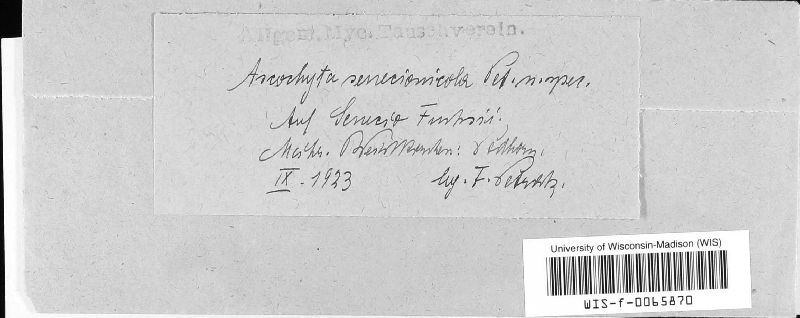 Allgem. Myc. Tauschverein.
Ascochyta senecionicola Pet. n. spec.
Auf Senecio Fuchsii.
Mähr. Weisskirchen: Podhorn.
IX. 1923 leg. F. Petrak.
University of Wisconsin-Madison (WIS)
WIS-f-0065870